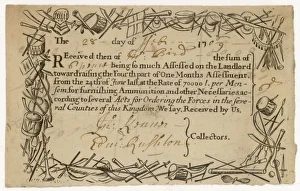 The 28 day of 17
REceived then of the sum of
being so much Assessed on the Landlord
toward raising the Fourth part of One Months Assessment,
from the 24th of June last, at the Rate of 70000 l. per Men-
sem for furnishing Ammunition and other Necessaries ac-
cording to several Acts for Ordering the Forces in the seve-
ral Counties of this Kingdom. We say, Received by Us,
Collectors.
Rushton